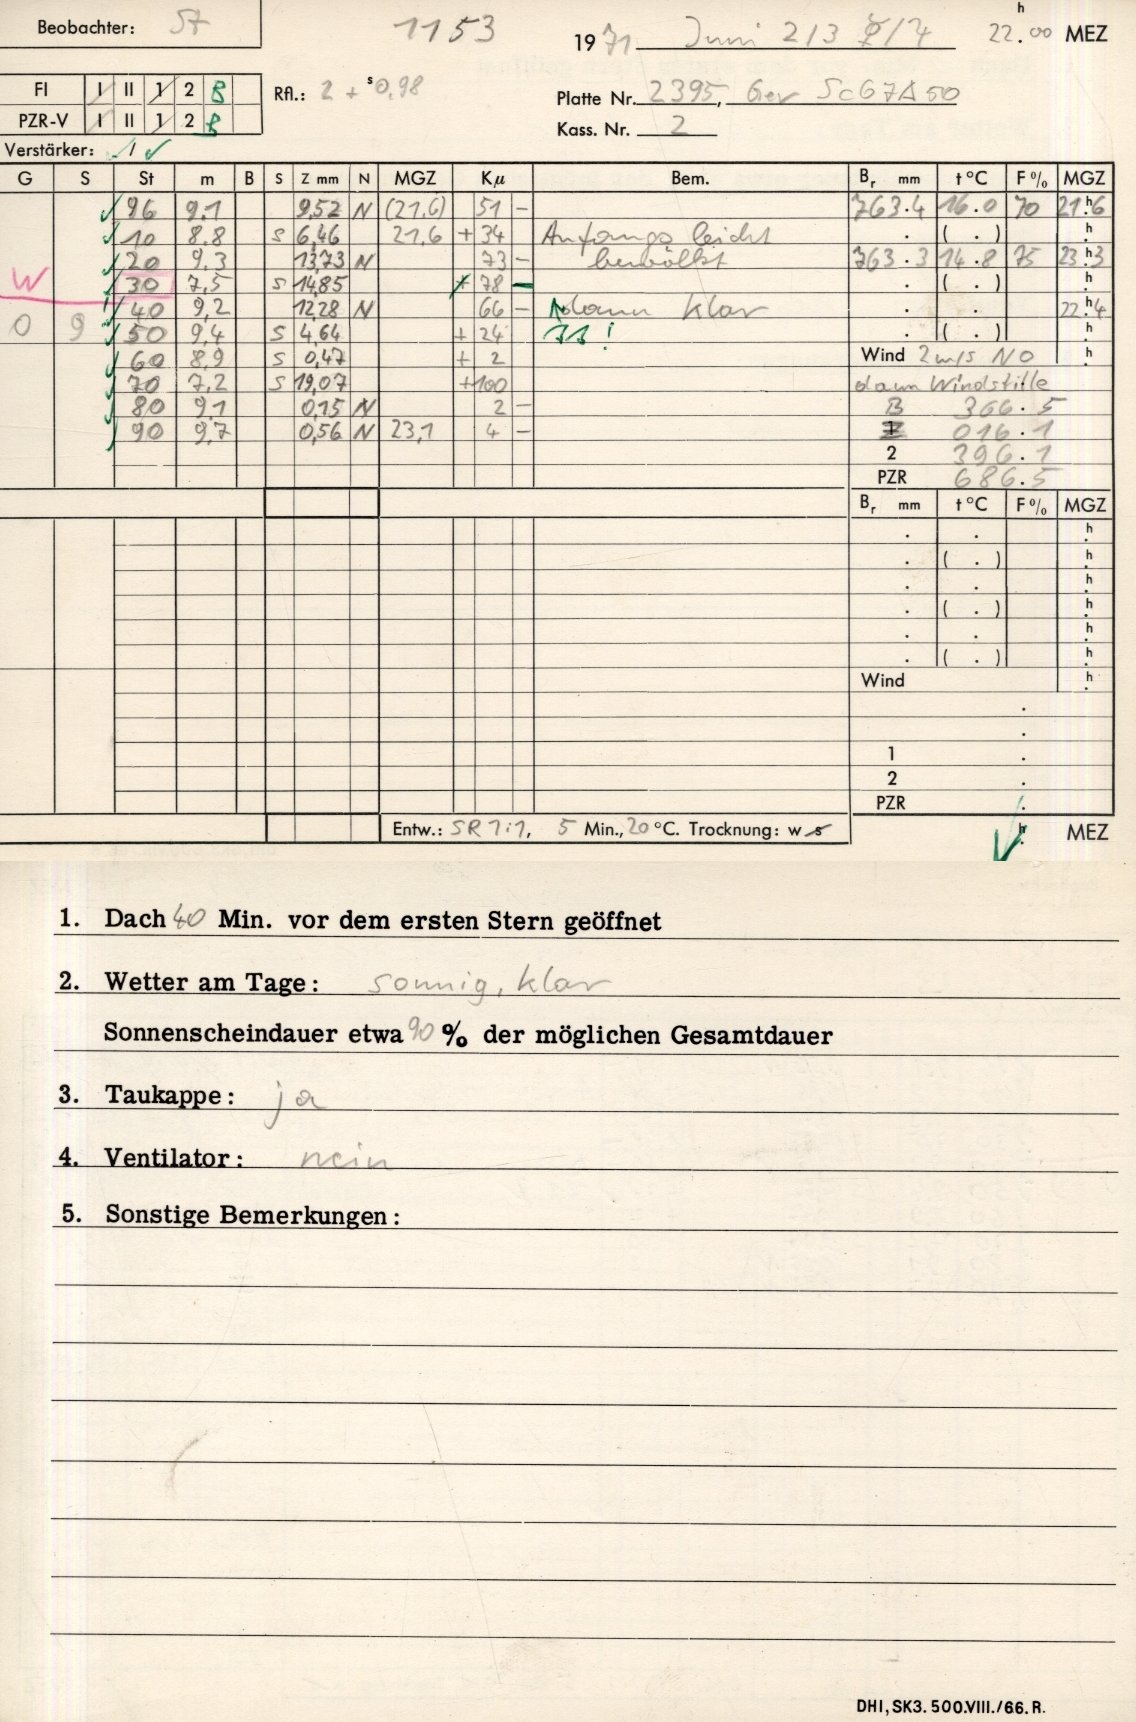 Beobachter: St
1153
1971 Juni 2/3 ☿/♃ 22.00 h MEZ
FI I II 1 2 B
PZR-V I II 1 2 B
Rfl.: 2 + s 0,98
Platte Nr. 2395, Gev Sc67A50
Kass. Nr. 2
Verstärker: /
G S St m B S Z mm N MGZ Kμ Bem. Br mm t°C F% MGZ
96 9.1 9,52 N (21,6) 51 – 763.4 16.0 70 21.h6
10 8.8 S 6,46 21,6 + 34 Anfangs leicht . ( . ) h.
20 9,3 13,73 N 73 – bewölkt 763.3 14.8 75 23.h3
W 30 7,5 S 14,85 78 – . ( . ) h.
40 9,2 12,28 N 66 – dann klar . . 22.h4
0 9 50 9,4 S 4,64 + 24 . ( . ) h.
60 8,9 S 0,47 + 2 Wind 2m/s NO h.
70 7,2 S 19,07 +100 dann Windstille
80 9,1 0,15 N 2 – B 366.5
90 9,7 0,56 N 23,1 4 – 1 016.1
2 396.1
PZR 686.5
Br mm t°C F% MGZ
. . h.
. ( . ) h.
. . h.
. ( . ) h.
. . h.
. ( . ) h.
Wind h.
.
.
1 .
2 .
PZR .
Entw.: SR 1:1, 5 Min., 20 °C. Trocknung: w s h. MEZ
1. Dach 40 Min. vor dem ersten Stern geöffnet
2. Wetter am Tage: sonnig, klar
Sonnenscheindauer etwa 90 % der möglichen Gesamtdauer
3. Taukappe: ja
4. Ventilator: nein
5. Sonstige Bemerkungen:
DHI, SK3. 500.VIII./66. R.